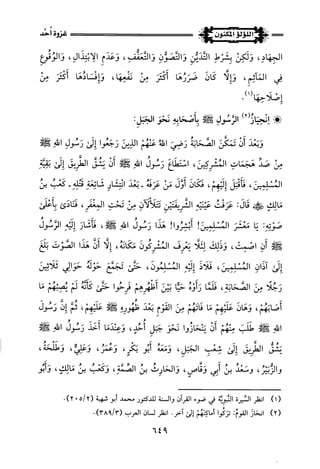 اللؤلؤ المكنون
غزوة أحد
الجِهَادِ، وَلَكِنْ بِشَرْطِ التَّدَيُّنِ وَالتَّصَوُّنِ وَالتَّعَفُّفِ، وَعَدَمِ الِابْتِذَالِ، وَالْوُقُوعِ
فِي المَآثِمِ، وَإِلَّا كَانَ ضَرَرُهَا أَكْثَرَ مِنْ نَفْعِهَا، وَإِفْسَادُهَا أَكْثَرَ مِنْ
إِصْلَاحِهَا(١).
* انْحِيَازُ(٢) الرَّسُولِ ﷺ بِأَصْحَابِهِ نَحْوَ الجَبَلِ:
وَبَعْدَ أَنْ تَمَكَّنَ الصَّحَابَةُ رَضِيَ اللهُ عَنْهُمُ الذِينَ رَجَعُوا إِلَى رَسُولِ اللهِ ﷺ
مِنْ صَدِّ هَجَمَاتِ المُشْرِكِينَ، اسْتَطَاعَ رَسُولُ اللهِ ﷺ أَنْ يَشُقَّ الطَّرِيقَ إِلَى بَقِيَّةِ
المُسْلِمِينَ، فَأَقْبَلَ إِلَيْهِمْ، فَكَانَ أَوَّلَ مَنْ عَرَفَهُ ـ بَعْدَ انْتِشَارِ شَائِعَةِ قَتْلِهِ ـ كَعْبُ بنُ
مَالِكٍ ﷺ قَالَ: عَرَفْتُ عَيْنَيْهِ الشَّرِيفَتَيْنِ تَتَلَأْلَآنِ مِنْ تَحْتِ المِغْفَرِ، فَنَادَى بِأَعْلَى
صَوْتِهِ: يَا مَعْشَرَ المُسْلِمِينَ! أَبْشِرُوا! هَذَا رَسُولُ اللهِ ﷺ، فَأَشَارَ إِلَيْهِ الرَّسُولُ
ﷺ أَنِ اصْمِتْ، وَذَلِكَ لِئَلَّا يَعْرِفَ المُشْرِكُونَ مَكَانَهُ، إِلَّا أَنَّ هَذَا الصَّوْتَ بَلَغَ
إِلَى آذَانِ المُسْلِمِينَ، فَلَاذَ إِلَيْهِ المُسْلِمُونَ، حَتَّى تَجَمَّعَ حَوْلَهُ حَوَالِي ثَلَاثِينَ
رَجُلًا مِنَ الصَّحَابَةِ، فَلَمَّا رَأَوْهُ حَيًّا بَيْنَ أَظْهُرِهِمْ فَرِحُوا حَتَّى كَأَنَّهُ لَمْ يُصِبْهُمْ مَا
أَصَابَهُمْ، وَهَانَ عَلَيْهِمْ مَا فَاتَهُمْ مِنَ القَوْمِ بَعْدَ ظُهُورِهِ ﷺ عَلَيْهِمْ، ثُمَّ إِنَّ رَسُولَ
اللهِ ﷺ طَلَبَ مِنْهُمْ أَنْ يَنْحَازُوا نَحْوَ جَبَلِ أُحُدٍ، وَعِنْدَمَا أَخَذَ رَسُولُ اللهِ ﷺ
يَشُقُّ الطَّرِيقَ إِلَى شِعْبِ الجَبَلِ، وَمَعَهُ أَبُو بَكْرٍ، وَعُمَرُ، وَعَلِيٌّ، وَطَلْحَةُ،
وَالزُّبَيْرُ، وَسَعْدُ بنُ أَبِي وَقَّاصٍ، وَالحَارِثُ بنُ الصِّمَّةِ، وَكَعْبُ بنُ مَالِكٍ، وَأَبُو
(١) انظر السِّيرة النَّبوِيَّة في ضوء القرآن والسنة للدكتور محمد أبو شهبة (٢٠٥/٢).
(٢) انحَازَ القومُ: تَرَكُوا أماكِنَهُمْ إلى آخر. انظر لسان العرب (٣٨٩/٣).
٦٤٩